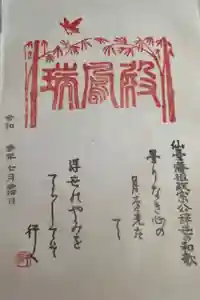 瑞鳳殿
仙臺藩祖政宗公辞世の和歌
曇りなき心の
月を先だてて
浮世のやみを
てらしてぞ
行く
令和